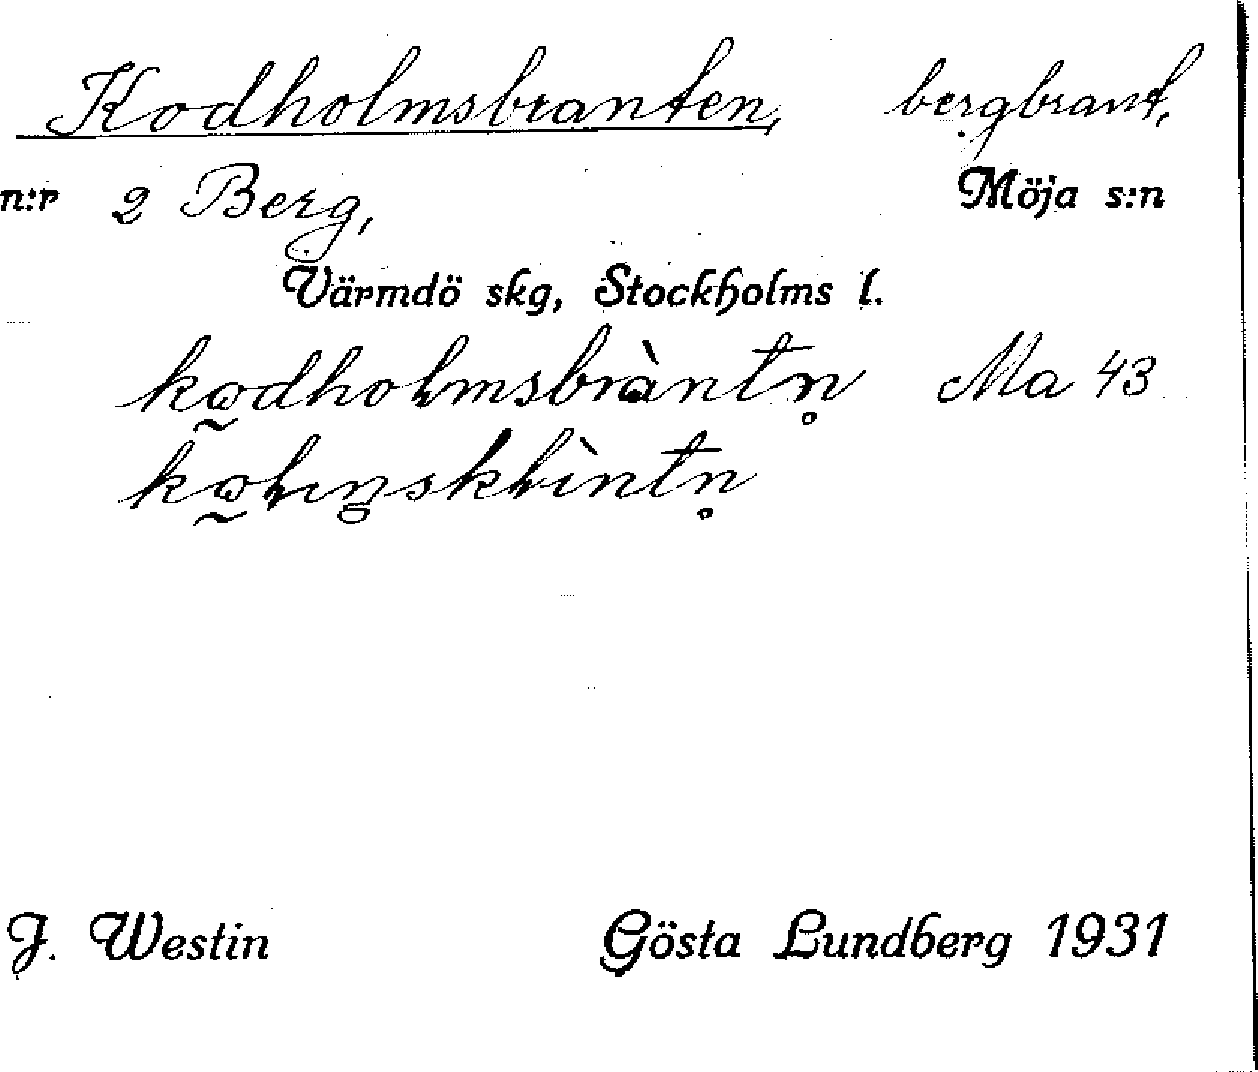 Kodholmsbranten, bergbrant,
n:r 2 Berg, Möja s:n
Värmdö skg, Stockholms l.
Ma 43
J. Westin Gösta Lundberg 1931